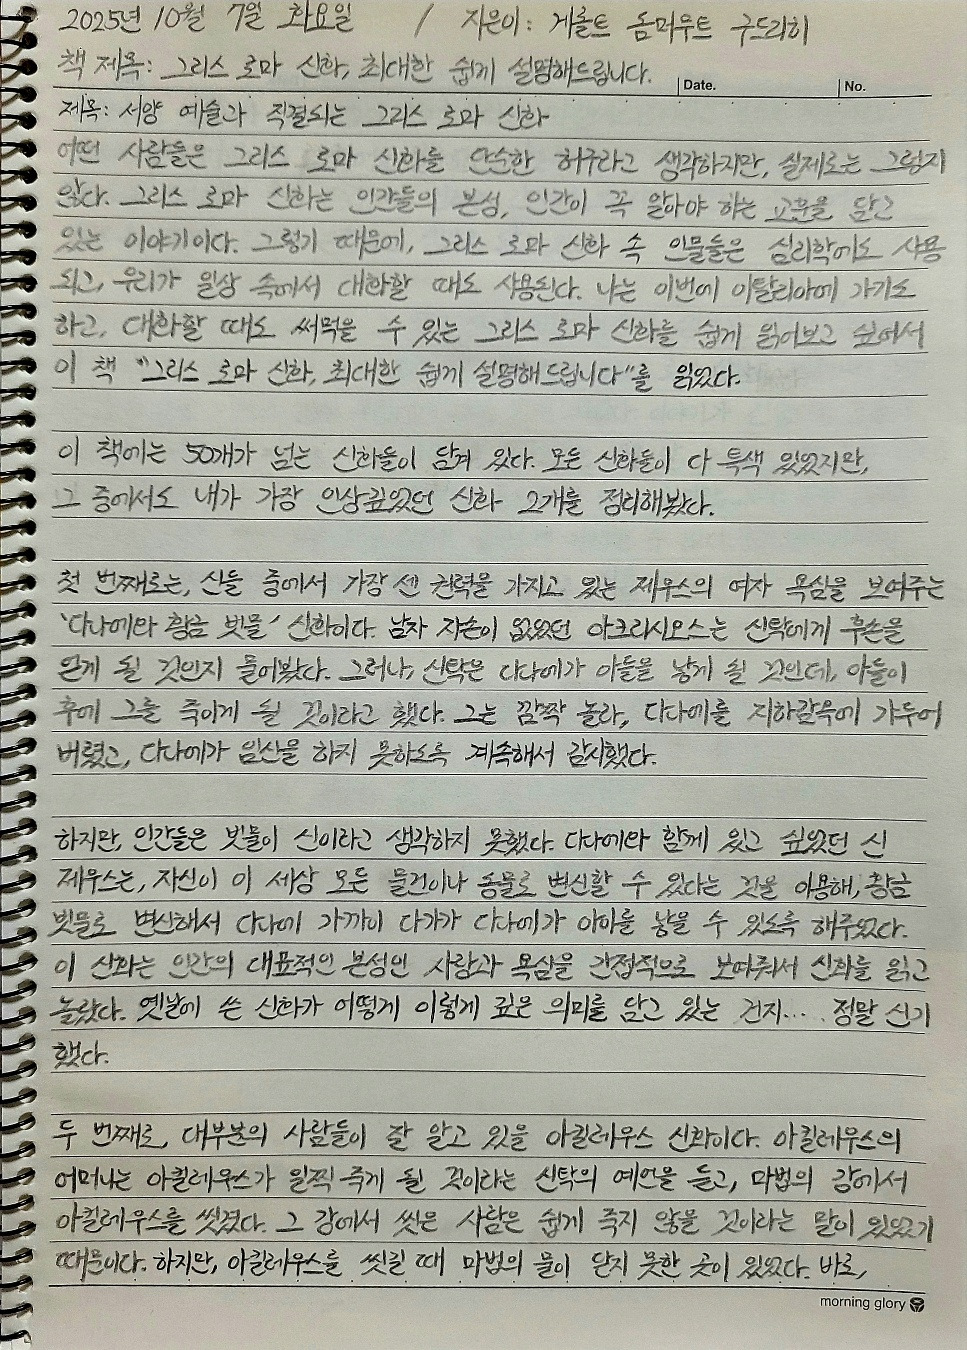 2025년 10월 7일 화요일 / 지은이: 게롤트 돔머무트 구드리히
책 제목: 그리스 로마 신화, 최대한 쉽게 설명해드립니다.
Date. No.
제목: 서양 예술과 직결되는 그리스 로마 신화
어떤 사람들은 그리스 로마 신화를 단순한 허구라고 생각하지만, 실제로는 그렇지
않다. 그리스 로마 신화는 인간들의 본성, 인간이 꼭 알아야 하는 교훈을 담고
있는 이야기이다. 그렇기 때문에, 그리스 로마 신화 속 인물들은 심리학에도 사용
되고, 우리가 일상 속에서 대화할 때도 사용된다. 나는 이번에 이탈리아에 가기도
하고, 대화할 때도 써먹을 수 있는 그리스 로마 신화를 쉽게 읽어보고 싶어서
이 책 "그리스 로마 신화, 최대한 쉽게 설명해드립니다"를 읽었다.
이 책에는 50개가 넘는 신화들이 담겨 있다. 모든 신화들이 다 특색 있었지만,
그 중에서도 내가 가장 인상깊었던 신화 2개를 정리해봤다.
첫 번째로는, 신들 중에서 가장 센 권력을 가지고 있는 제우스의 여자 욕심을 보여주는
'다나에와 황금 빗물' 신화이다. 남자 자손이 없었던 아크리시오스는 신탁에게 후손을
얻게 될 것인지 물어봤다. 그러나, 신탁은 다나에가 아들을 낳게 될 것인데, 아들이
후에 그를 죽이게 될 것이라고 했다. 그는 깜짝 놀라, 다나에를 지하감옥에 가두어
버렸고, 다나에가 임신을 하지 못하도록 계속해서 감시했다.
하지만, 인간들은 빗물이 신이라고 생각하지 못했다. 다나에와 함께 있고 싶었던 신
제우스는, 자신이 이 세상 모든 물건이나 동물로 변신할 수 있다는 것을 이용해, 황금
빗물로 변신해서 다나에 가까이 다가가 다나에가 아이를 낳을 수 있도록 해주었다.
이 신화는 인간의 대표적인 본성인 사랑과 욕심을 간접적으로 보여줘서 신화를 읽고
놀랐다. 옛날에 쓴 신화가 어떻게 이렇게 깊은 의미를 담고 있는 건지.... 정말 신기
했다.
두 번째로, 대부분의 사람들이 잘 알고 있을 아킬레우스 신화이다. 아킬레우스의
어머니는 아킬레우스가 일찍 죽게 될 것이라는 신탁의 예언을 듣고, 마법의 강에서
아킬레우스를 씻겼다. 그 강에서 씻은 사람은 쉽게 죽지 않을 것이라는 말이 있었기
때문이다. 하지만, 아킬레우스를 씻길 때 마법의 물이 닿지 못한 곳이 있었다. 바로,
morning glory